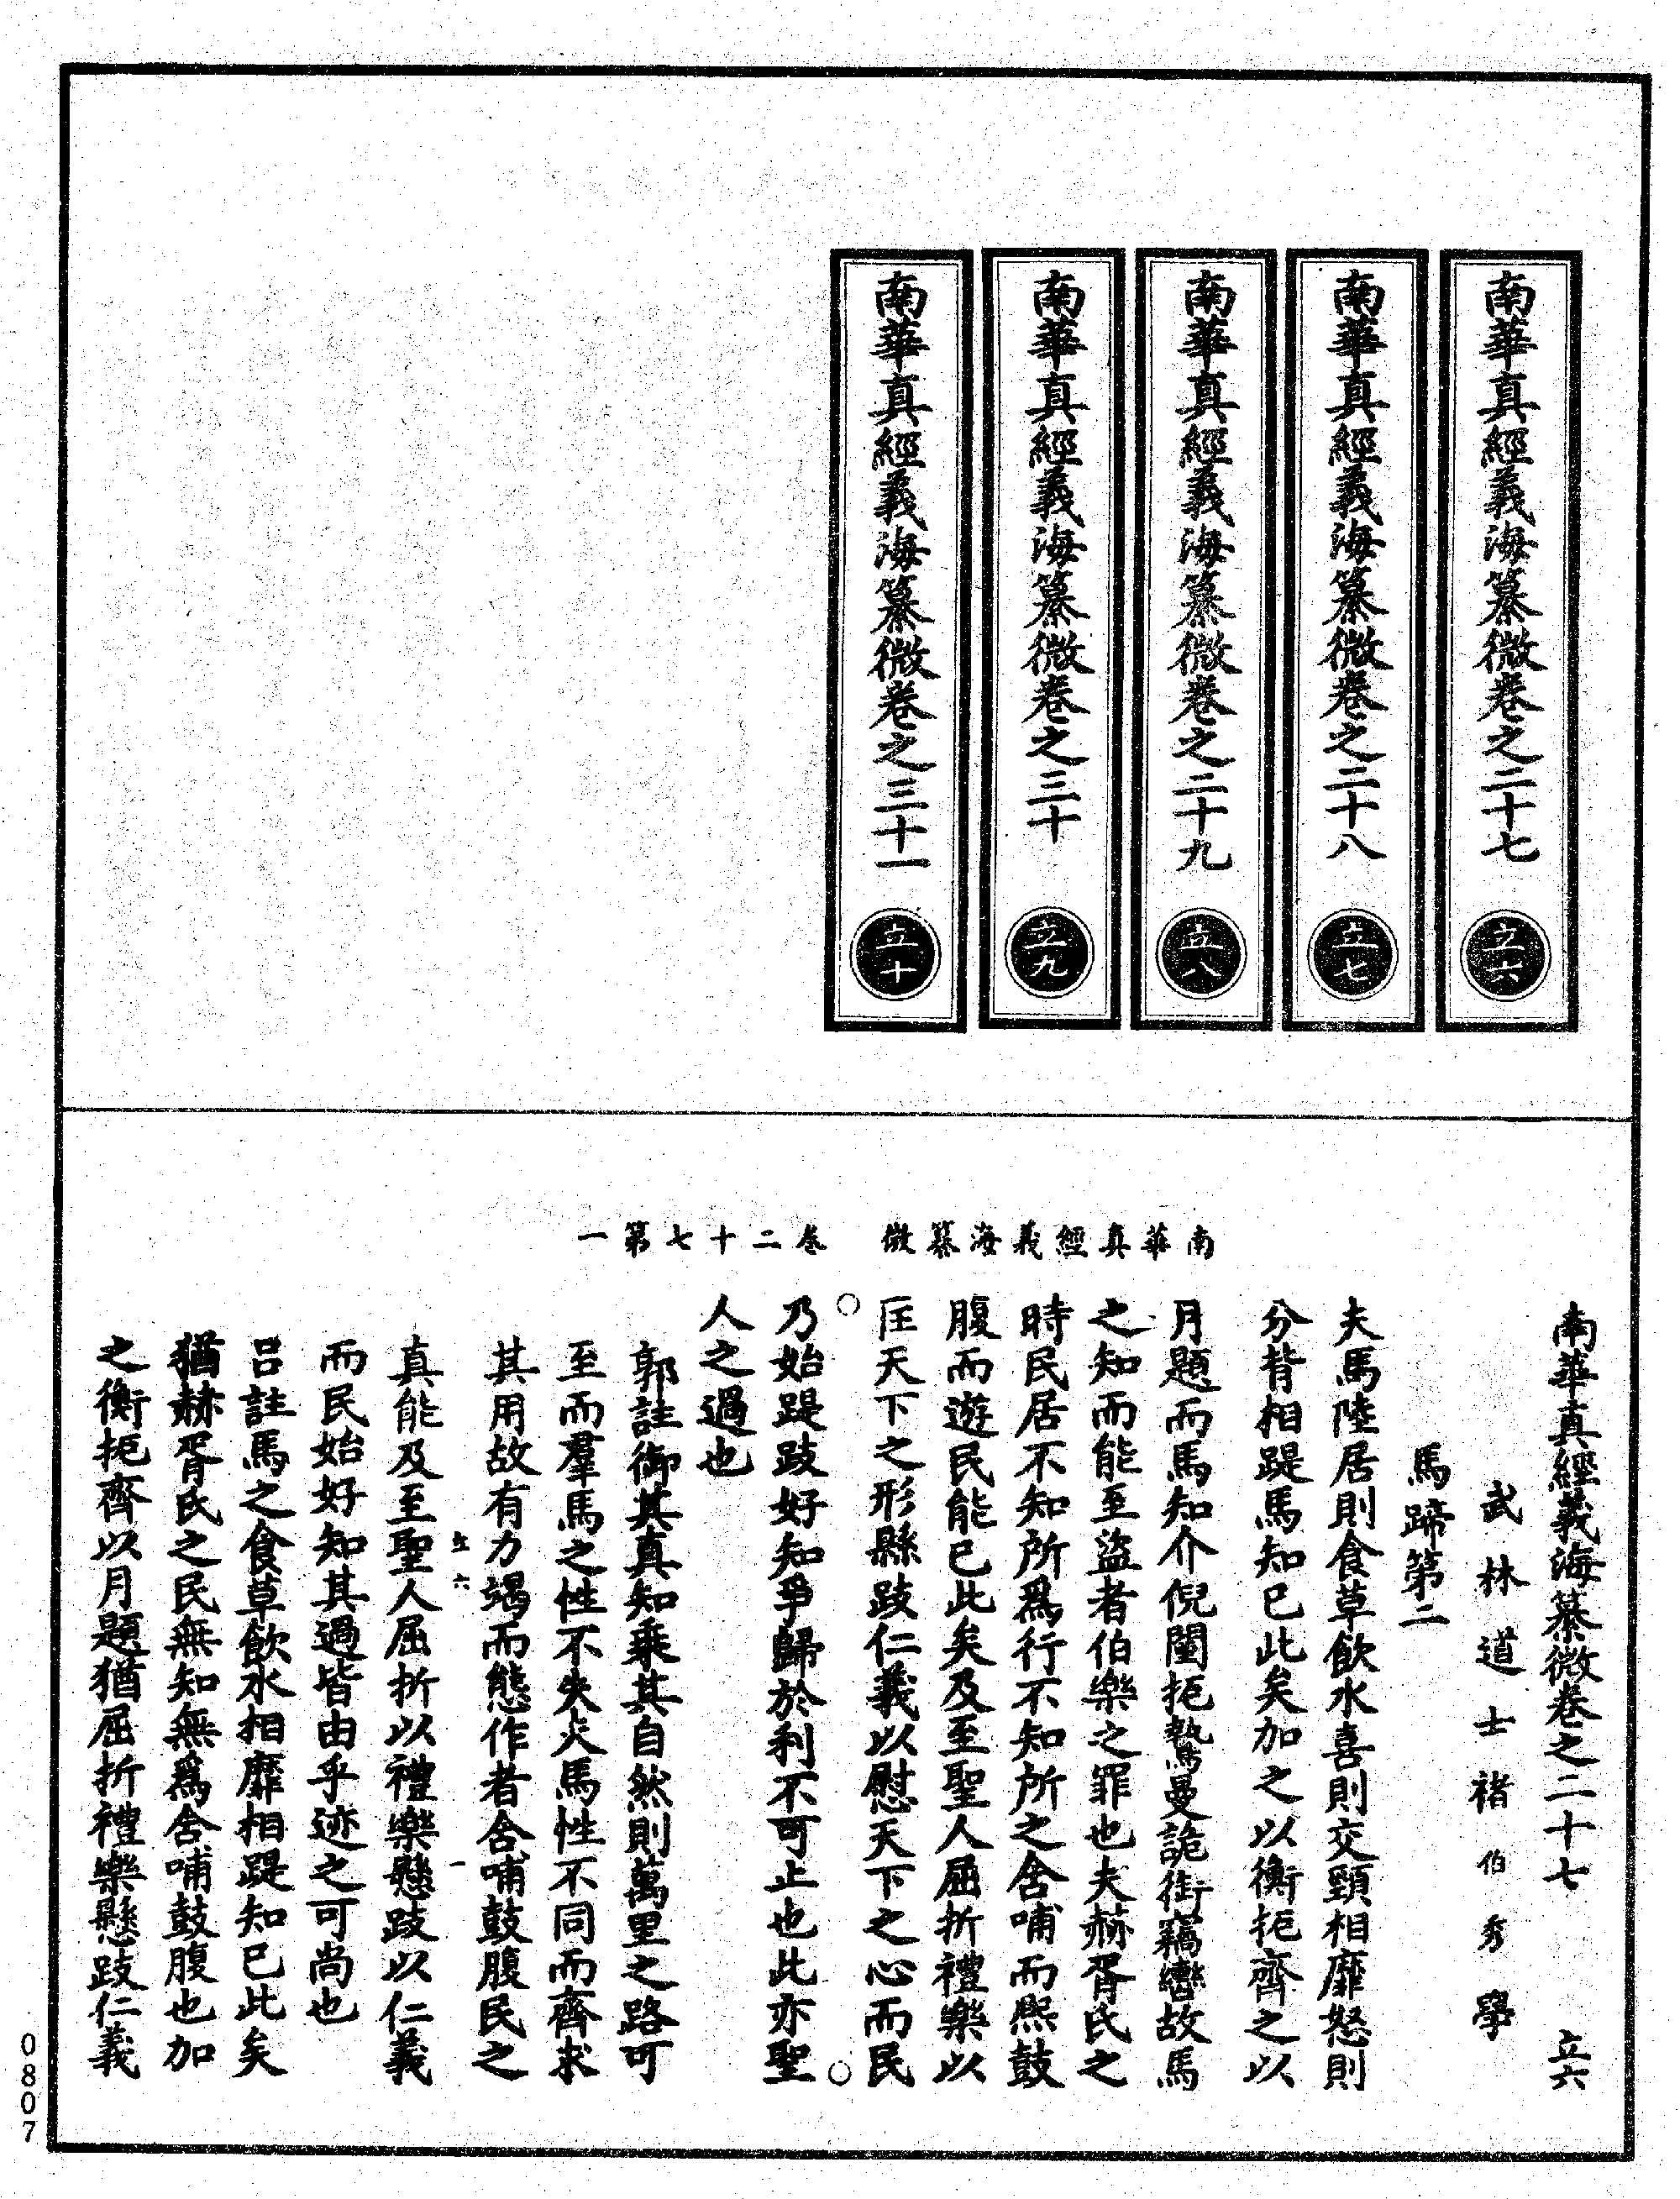 南華真經義海纂微卷之二十七 立六
南華真經義海纂微卷之二十八 立七
南華真經義海纂微卷之二十九 立八
南華真經義海纂微卷之三十 立九
南華真經義海纂微卷之三十一 立十
南華真經義海纂微 卷二十七第一
南華真經義海纂微卷之二十七 立六
武林道士褚伯秀學
馬蹄第二
夫馬陸居則食草飲水喜則交頸相靡怒則
分背相踶馬知已此矣加之以衡扼齊之以
月題而馬知介倪闉扼鷙曼詭銜竊轡故馬
之知而能至盜者伯樂之罪也夫赫胥氏之
時民居不知所爲行不知所之含哺而熙鼓
腹而遊民能已此矣及至聖人屈折禮樂以
匡天下之形縣跂仁義以慰天下之心而民
乃始踶跂好知爭歸於利不可止也此亦聖
人之過也
郭註御其真知乘其自然則萬里之路可
至而羣馬之性不失夫馬性不同而齊求
其用故有力竭而態作者含哺鼓腹民之
真能及至聖人屈折以禮樂懸跂以仁義
而民始好知其過皆由乎迹之可尚也
呂註馬之食草飲水相靡相踶知已此矣
猶赫胥氏之民無知無爲含哺鼓腹也加
之衡扼齊以月題猶屈折禮樂懸跂仁義
0807